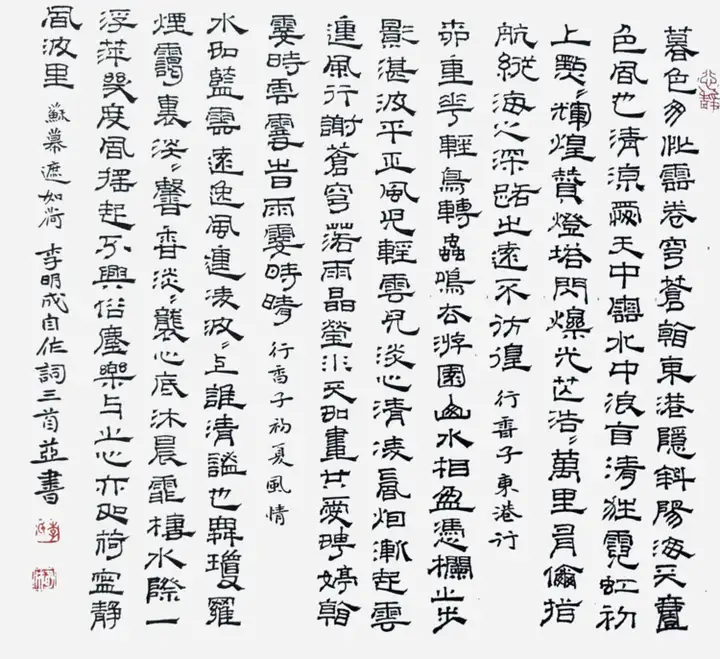 暮色卷穹蒼翰東港隱斜陽海天
色風也清涼兩天中水中浪自清狂霓虹初
上點〻輝煌贊燈塔閃爍光芒浩〻萬里肩指
航縱海之深路之遠不彷徨 行香子東港行
重輕鳥轉蟲鳴去游園山水相盈憑欄止步
影湛波平正風兒輕雲兒淡心清凌晨煙漸起雲
連風行謝蒼穹落雨晶瑩水天如畫共愛娉婷翰
霎時雲霎時雨霎時晴 行香子初夏風情
水如藍雲遠逸風連凌波〻上誰清謐也舞瓊羅
煙靄裏淡〻馨香淡〻襲心底沐晨霏棲水際一
浮萍幾度風搖起不與俗塵樂与止心亦如荷寧靜
風波里 蘇幕遮如荷 李明成自作詞三首並書